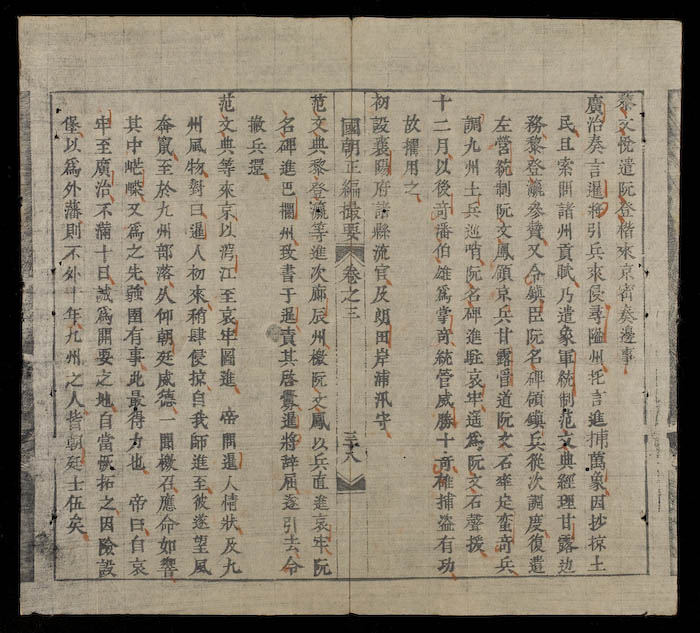 黎文悅遣阮登楷來京密奏邊事
廣治奏言暹將引兵來侵尋隘州托言進捕萬象因抄掠土
民且索問諸州貢賦乃遣象軍統制范文典經理甘露边
務黎登瀛參賛又令鎮臣阮名碑領鎮兵從次調度復遣
左營統制阮文鳳領京兵甘露管道阮文石率定蛮竒兵
調九州土兵巡哨阮名碑進駐哀牢遥爲阮文石聲援
十二月以後竒潘伯雄爲掌竒統管威勝十竒雄捕盗有功
故擢用之
初設襄陽府諸縣流官及朗田岸浦汛守
國朝正編撮要 卷之三 三十八
范文典黎登瀛等進次廊辰州檄阮文鳳以兵直進哀牢阮
名碑進巴欄州致書于暹責其啓釁暹將辞屈遂引去令
撤兵還
范文典等來京以湾江至哀牢圖進 帝聞暹人情狀及九
州風物對曰暹人初來稍肆侵掠自我師進至彼遂望風
奔竄至於九州部落久仰朝廷威德一聞檄召應命如響
其中又爲之先強國有事此最得力也 帝曰自哀
牢至廣治不滿十日誠爲關要之地自當恢拓之因險設
堡以爲外藩則不外十年九州之人皆朝廷士伍矣